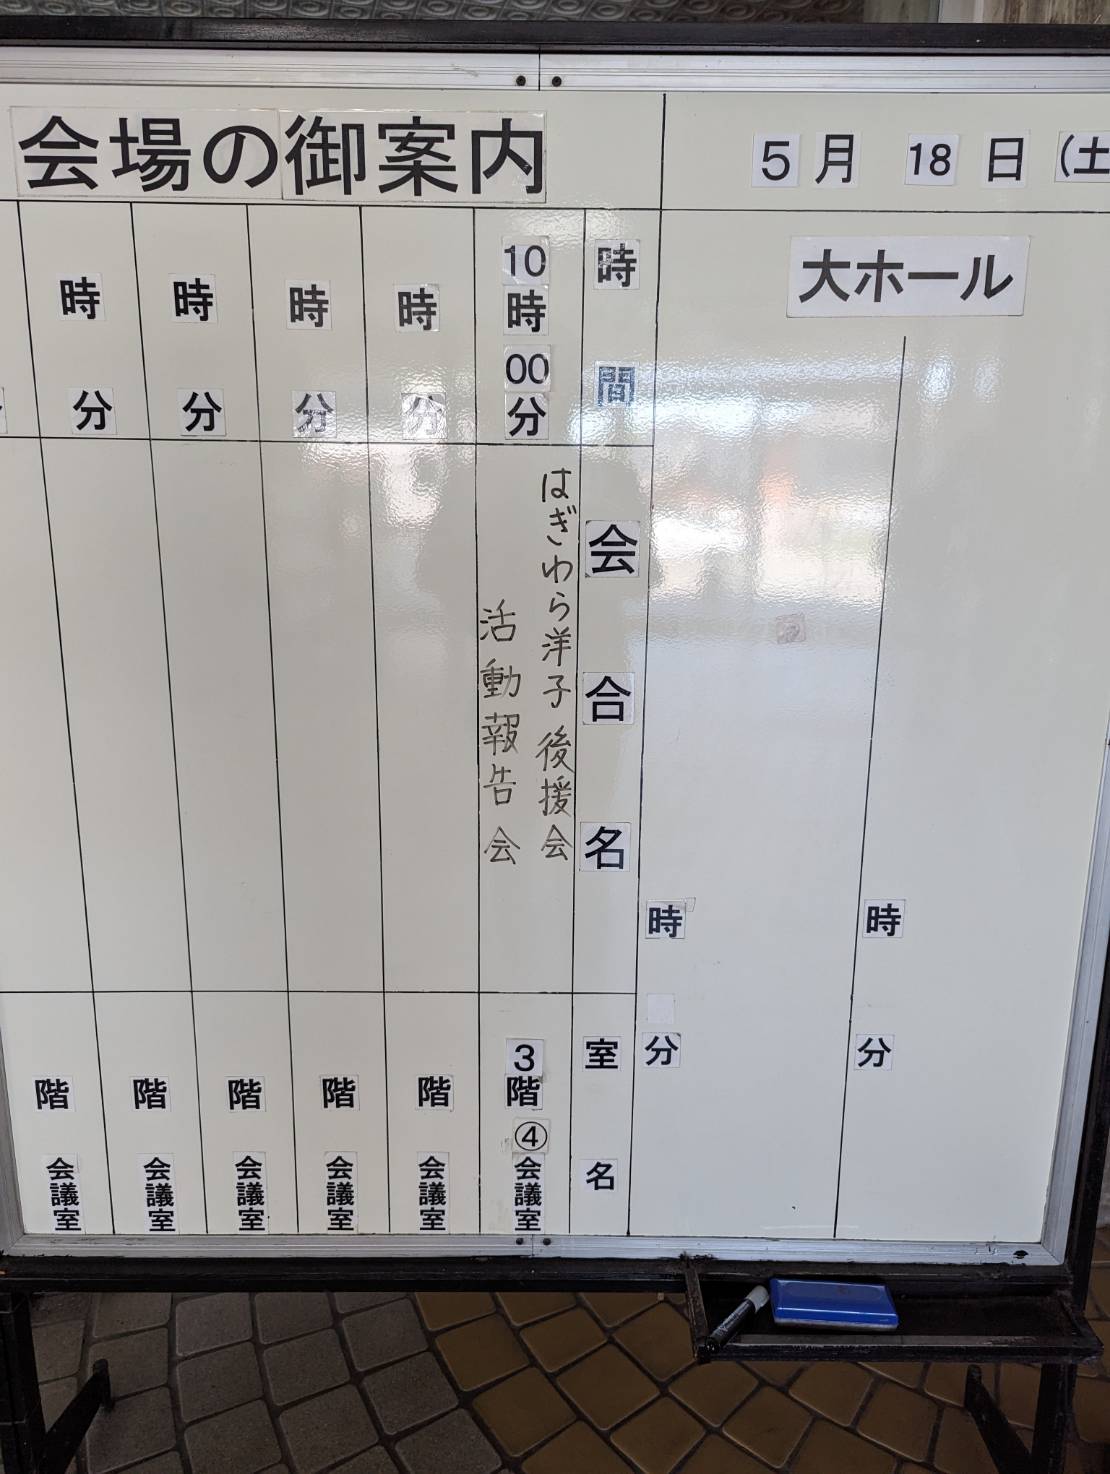 会場の御案内
5月18日(土
大ホール
時分
時分
時間
会合名
室名
10時00分
はぎわら洋子後援会
活動報告会
3階④会議室
時分
階会議室
時分
階会議室
時分
階会議室
時分
階会議室
階会議室